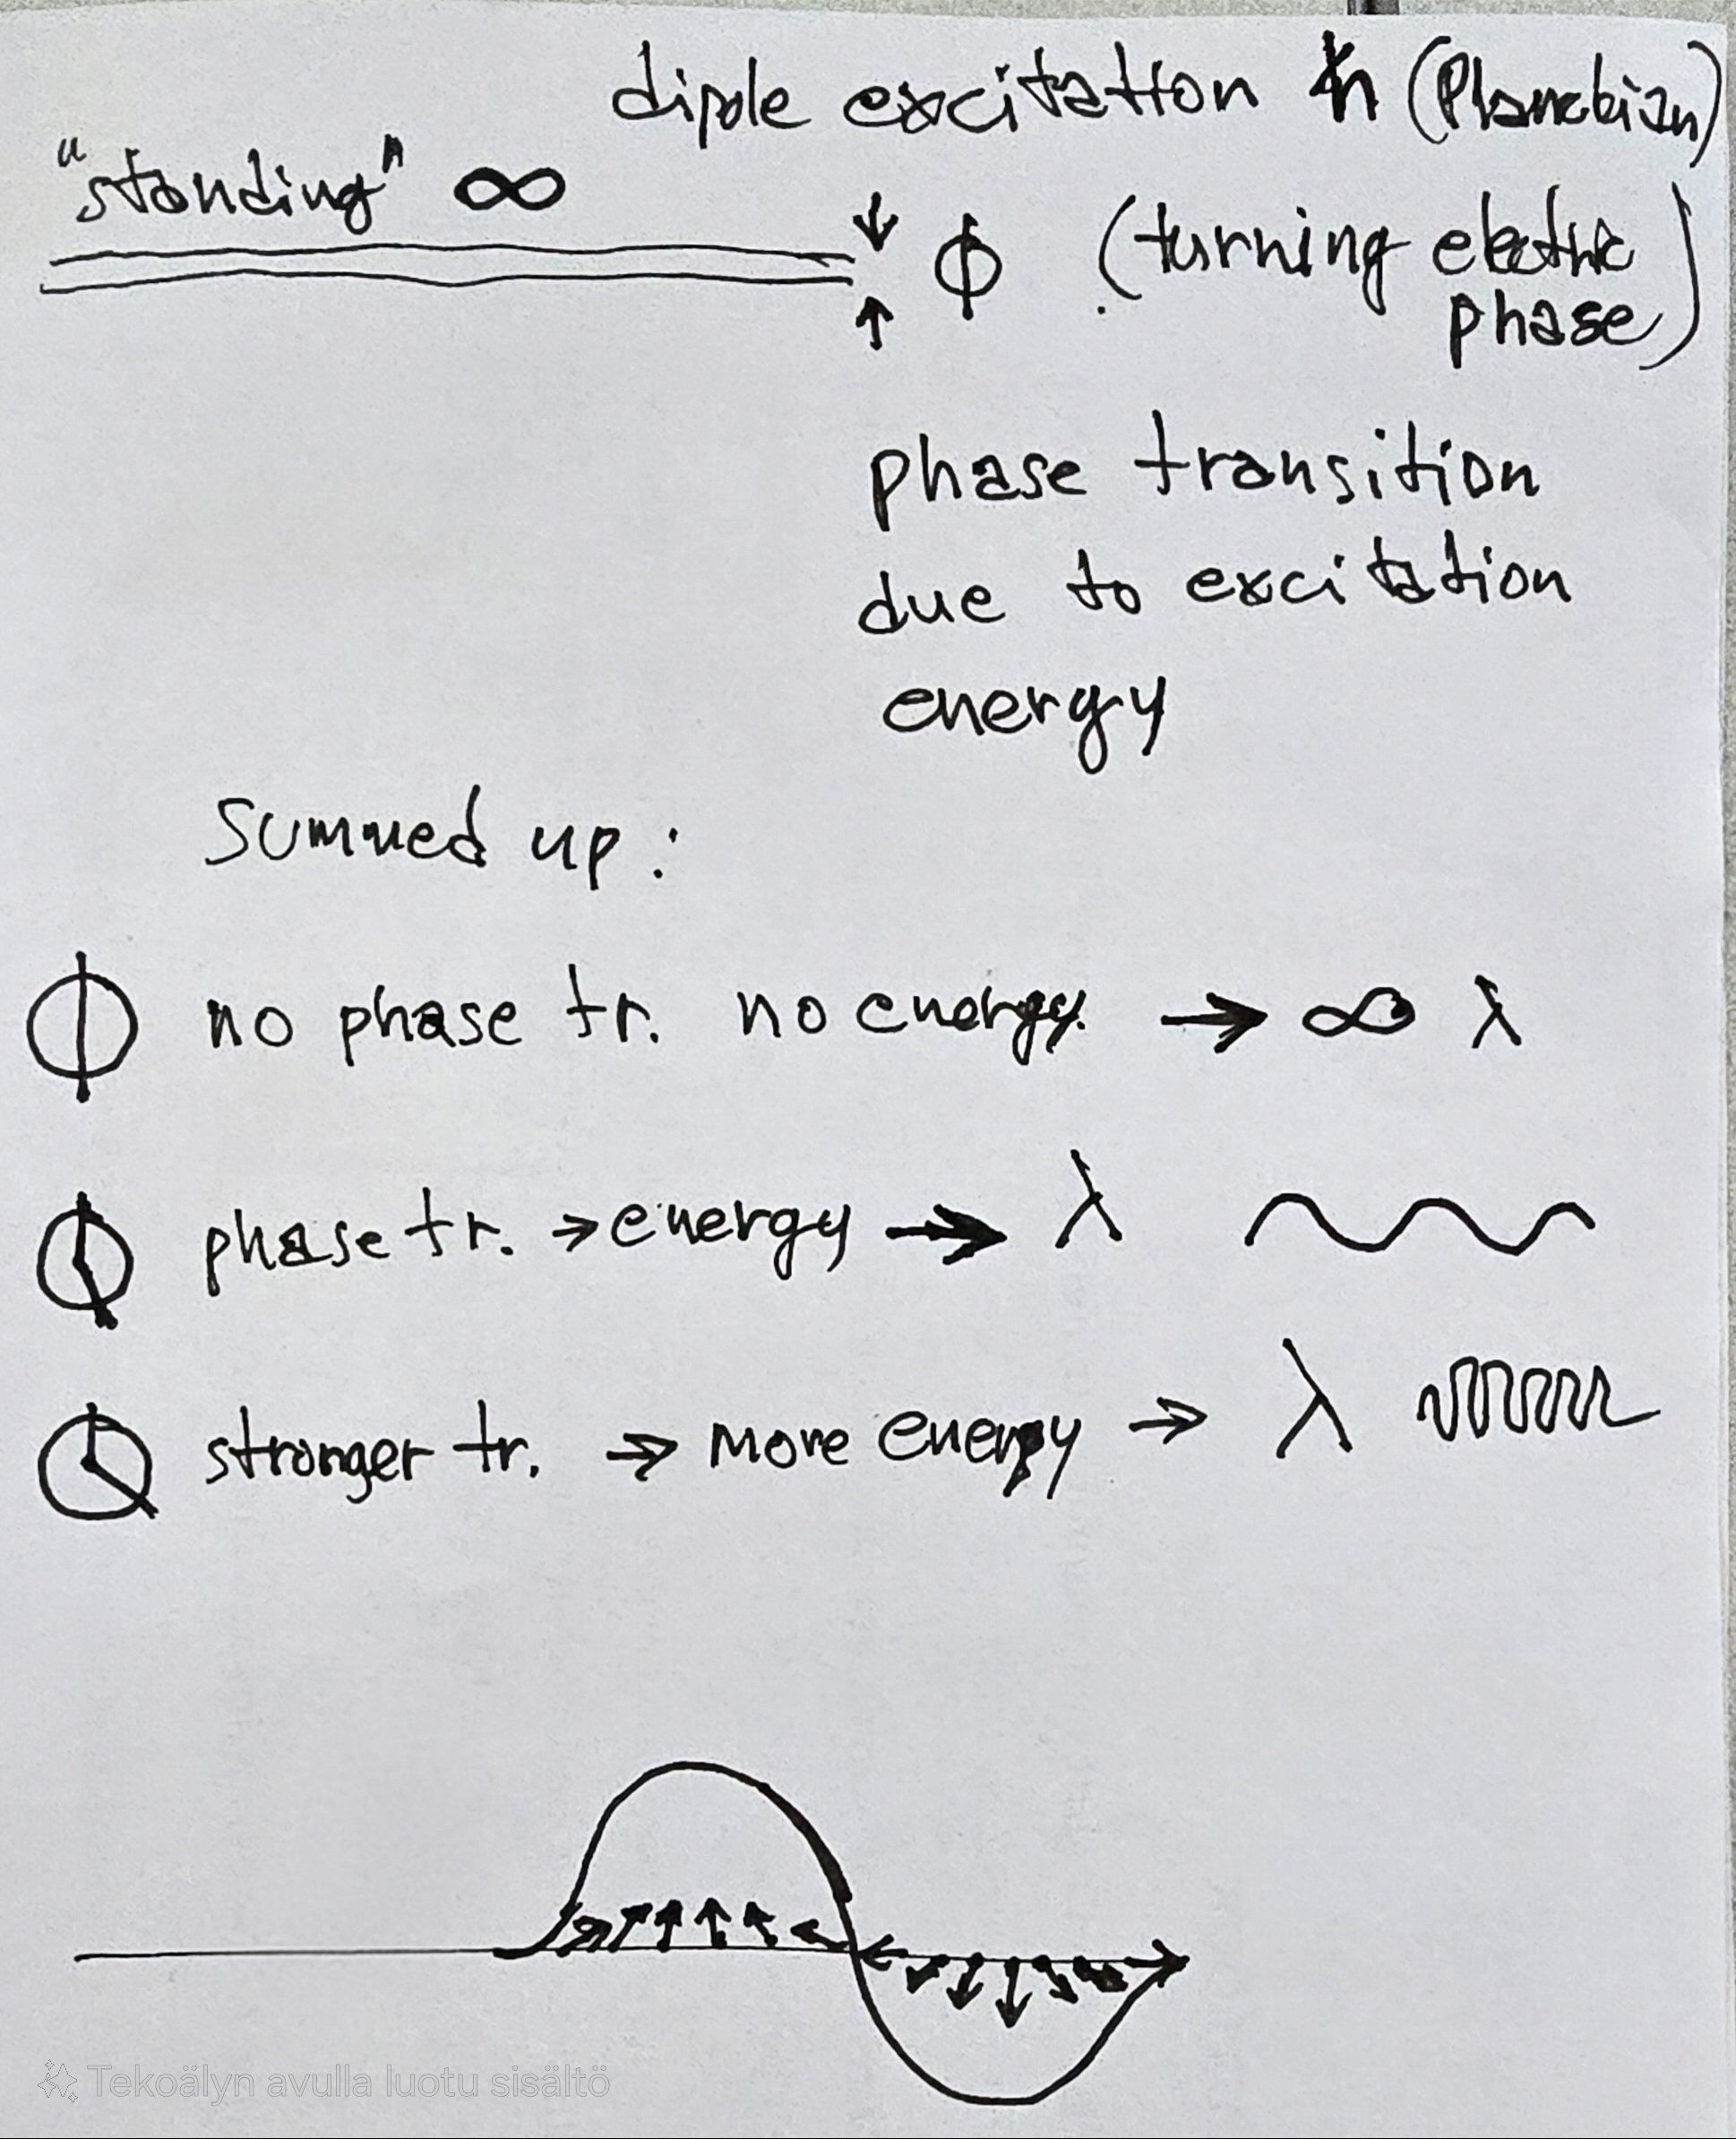 dipole excitation ℏ (Planckian)
"standing" ∞
ϕ (turning electric
phase)
phase transition
due to excitation
energy
Summed up:
no phase tr. no energy. → ∞ λ
phase tr. → energy → λ
stronger tr. → more energy → λ
Tekoälyn avulla luotu sisältö